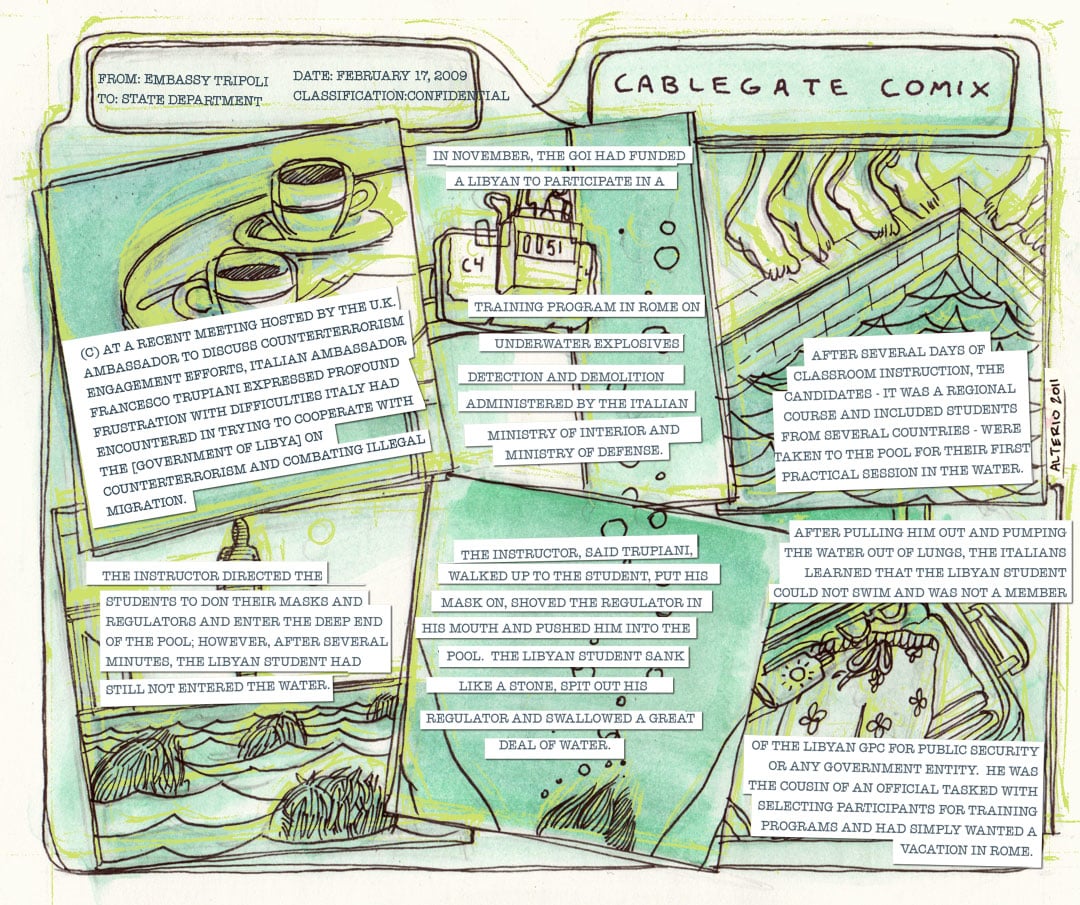 FROM: EMBASSY TRIPOLI
TO: STATE DEPARTMENT
DATE: FEBRUARY 17, 2009
CLASSIFICATION:CONFIDENTIAL
CABLEGATE COMIX
(C) AT A RECENT MEETING HOSTED BY THE U.K.
AMBASSADOR TO DISCUSS COUNTERTERRORISM
ENGAGEMENT EFFORTS, ITALIAN AMBASSADOR
FRANCESCO TRUPIANI EXPRESSED PROFOUND
FRUSTRATION WITH DIFFICULTIES ITALY HAD
ENCOUNTERED IN TRYING TO COOPERATE WITH
THE [GOVERNMENT OF LIBYA] ON
COUNTERTERRORISM AND COMBATING ILLEGAL
MIGRATION.
IN NOVEMBER, THE GOI HAD FUNDED
A LIBYAN TO PARTICIPATE IN A
0051
C4
TRAINING PROGRAM IN ROME ON
UNDERWATER EXPLOSIVES
DETECTION AND DEMOLITION
ADMINISTERED BY THE ITALIAN
MINISTRY OF INTERIOR AND
MINISTRY OF DEFENSE.
AFTER SEVERAL DAYS OF
CLASSROOM INSTRUCTION, THE
CANDIDATES - IT WAS A REGIONAL
COURSE AND INCLUDED STUDENTS
FROM SEVERAL COUNTRIES - WERE
TAKEN TO THE POOL FOR THEIR FIRST
PRACTICAL SESSION IN THE WATER.
ALTERIO 2011
THE INSTRUCTOR DIRECTED THE
STUDENTS TO DON THEIR MASKS AND
REGULATORS AND ENTER THE DEEP END
OF THE POOL; HOWEVER, AFTER SEVERAL
MINUTES, THE LIBYAN STUDENT HAD
STILL NOT ENTERED THE WATER.
THE INSTRUCTOR, SAID TRUPIANI,
WALKED UP TO THE STUDENT, PUT HIS
MASK ON, SHOVED THE REGULATOR IN
HIS MOUTH AND PUSHED HIM INTO THE
POOL. THE LIBYAN STUDENT SANK
LIKE A STONE, SPIT OUT HIS
REGULATOR AND SWALLOWED A GREAT
DEAL OF WATER.
AFTER PULLING HIM OUT AND PUMPING
THE WATER OUT OF LUNGS, THE ITALIANS
LEARNED THAT THE LIBYAN STUDENT
COULD NOT SWIM AND WAS NOT A MEMBER
OF THE LIBYAN GPC FOR PUBLIC SECURITY
OR ANY GOVERNMENT ENTITY. HE WAS
THE COUSIN OF AN OFFICIAL TASKED WITH
SELECTING PARTICIPANTS FOR TRAINING
PROGRAMS AND HAD SIMPLY WANTED A
VACATION IN ROME.